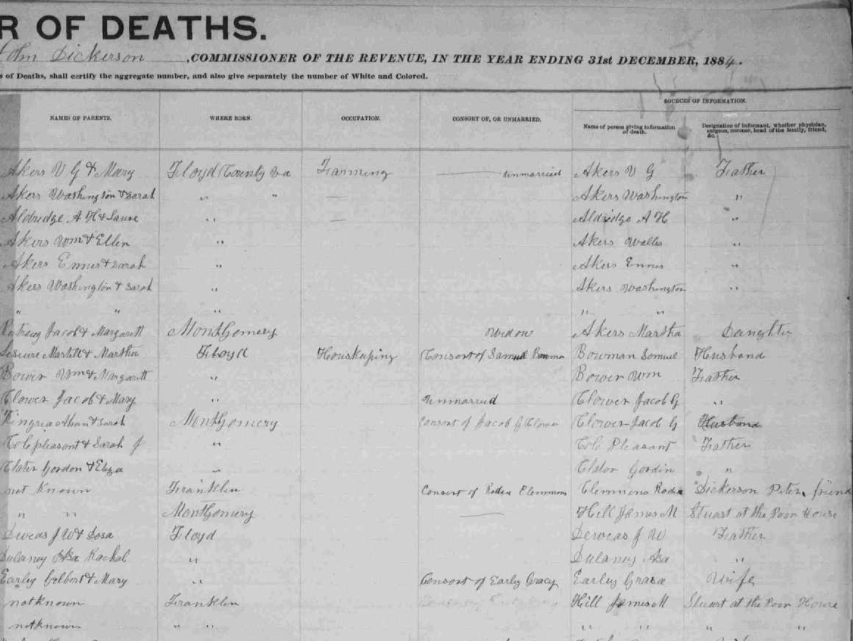 R OF DEATHS.
John Dickerson, COMMISSIONER OF THE REVENUE, IN THE YEAR ENDING 31st DECEMBER, 1884.
s of Deaths, shall certify the aggregate number, and also give separately the number of White and Colored.
SOURCES OF INFORMATION.
NAMES OF PARENTS. WHERE BORN. OCCUPATION. CONSORT OF, OR UNMARRIED. Name of person giving information of death. Designation of informant, whether physician, surgeon, coroner, head of the family, friend, &c.
Akers V G & Mary Floyd County Va Farming unmarried Akers V G Father
Akers Washington & Sarah " " Akers Washington "
Aldridge A H & " Aldridge A H "
Akers Wm & Ellen " Akers "
Akers Ennis & Sarah " Akers Ennis "
Akers Washington & Sarah " Akers Washington "
" " " " " "
Jacob & Margarett Montgomery Widow Akers Martha Daughter
& Martha Floyd Houskeping Consort of Samuel Bowman Samuel Husband
Bower Wm & Margarett " Bower Wm Father
Clower Jacob & Mary " Unmarried Clower Jacob G "
& Sarah Montgomery Consort of Jacob G Clower Clower Jacob G Husband
Cole pleasant & Sarah J " Cole Pleasant Father
Gordon & Eliza " Gordin "
not Known Franklin Consort of Clemmons Dickerson Peter friend
" " Montgomery Hill James M Stuart at the Poor House
Deweas J W & Floyd Deweas J W Father
Dulaney Asa Rachel " Dulaney Asa "
Earley Gilbert & Mary " Consort of Earley Earley Wife
not known Franklin Hill James M Stuart at the Poor House
not known " " " " " "